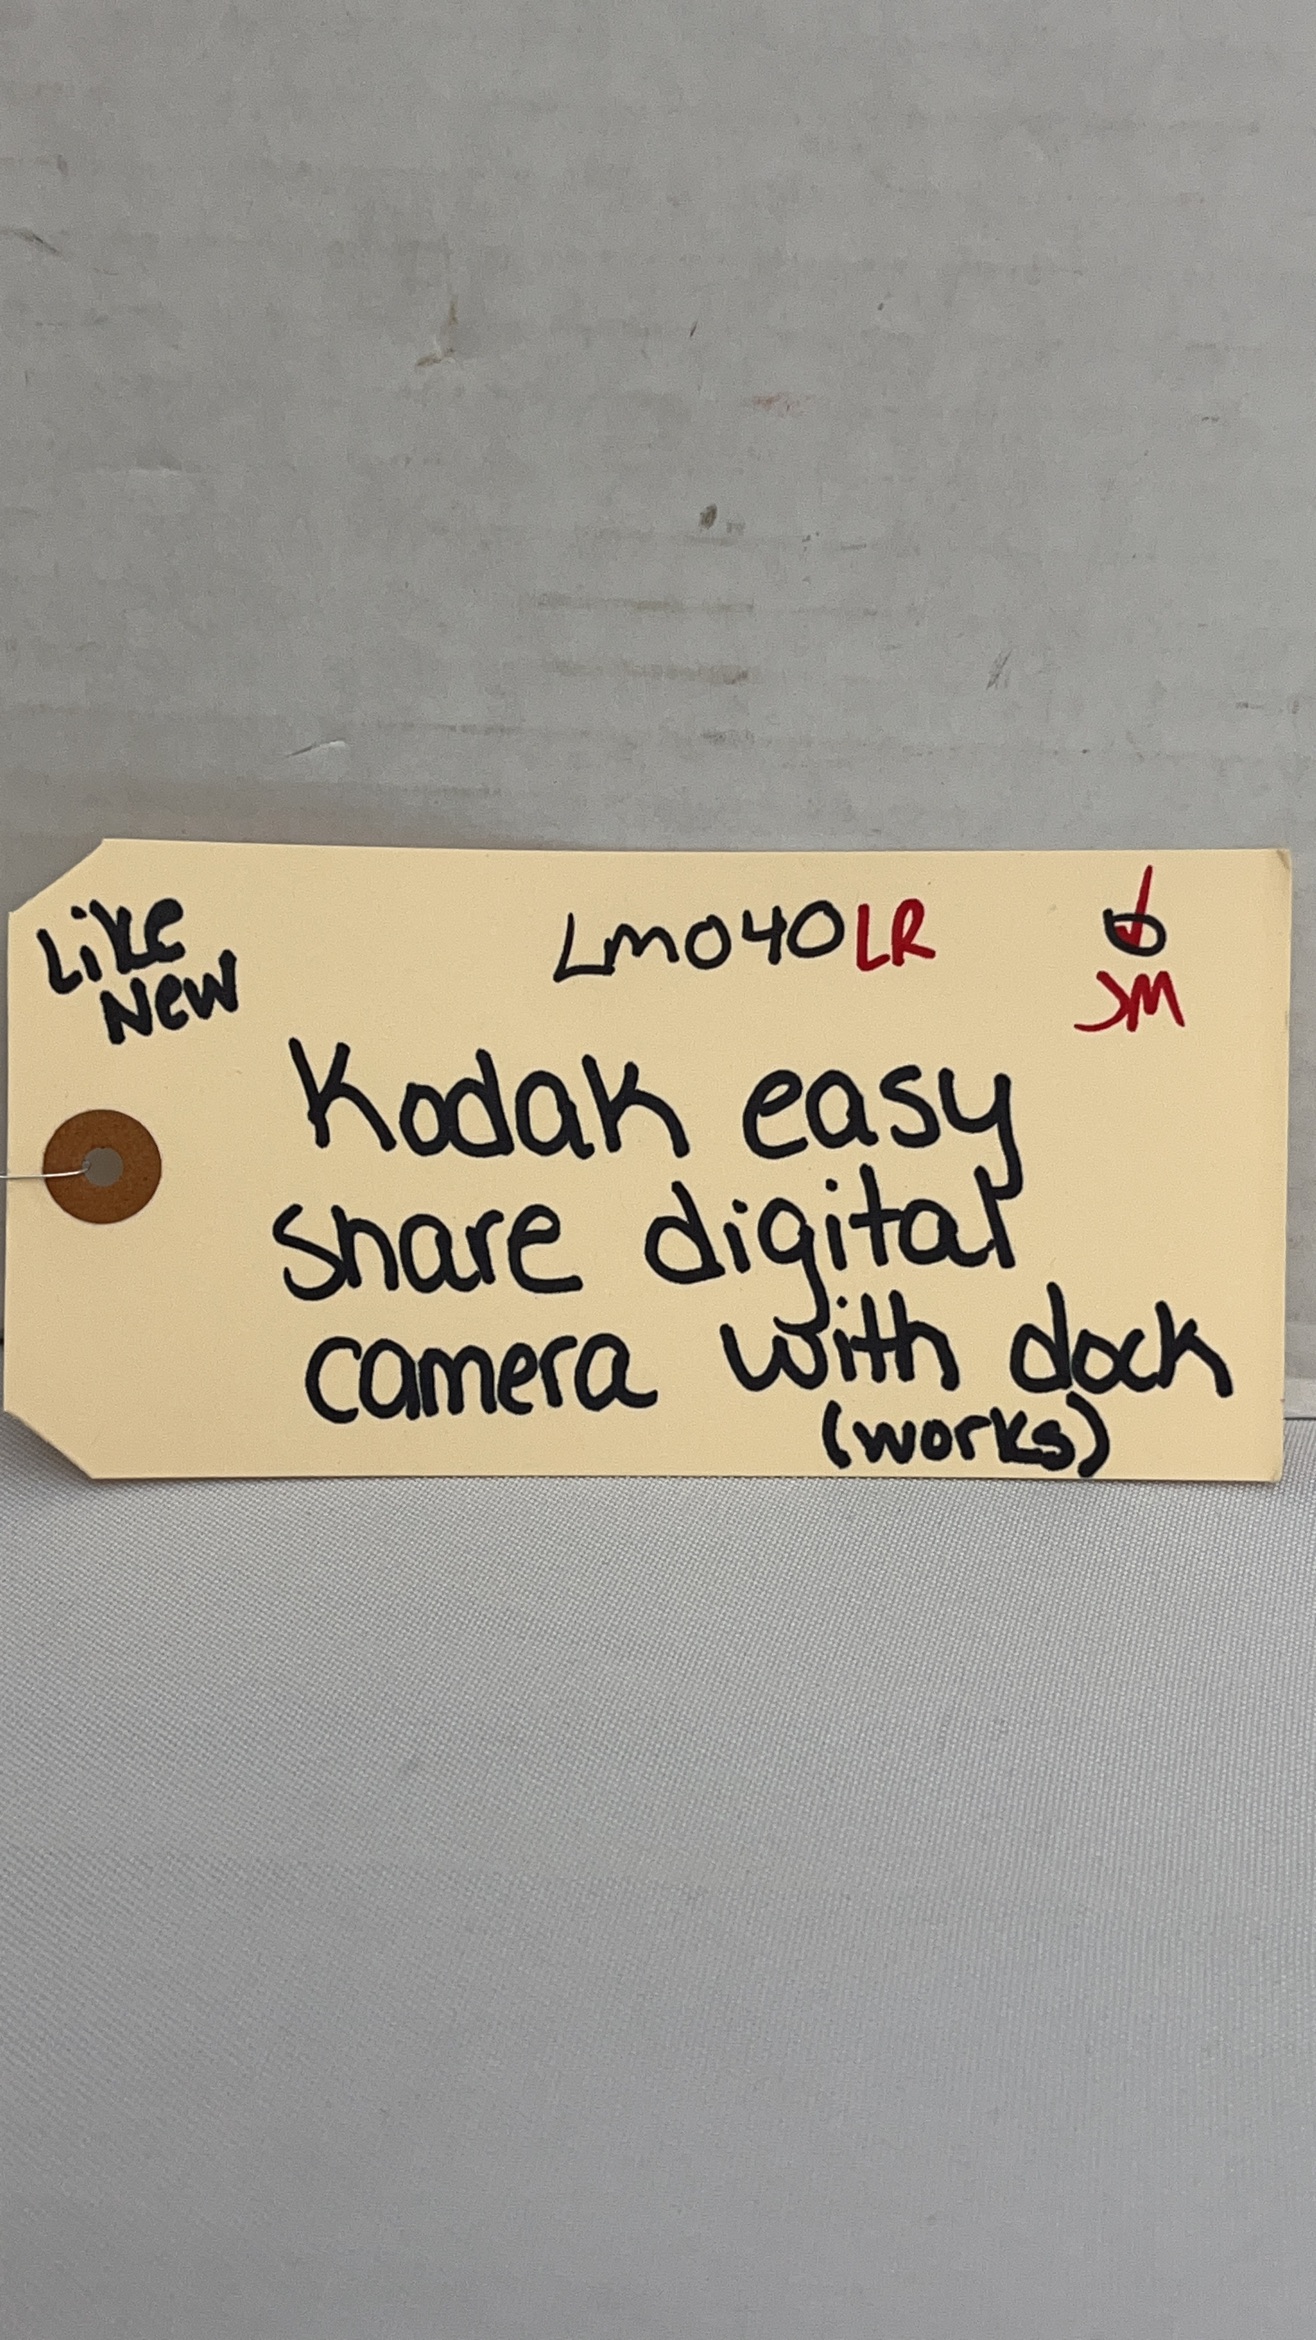 Like
New
LM040LR
JM
Kodak easy
share digital
camera with dock
(works)